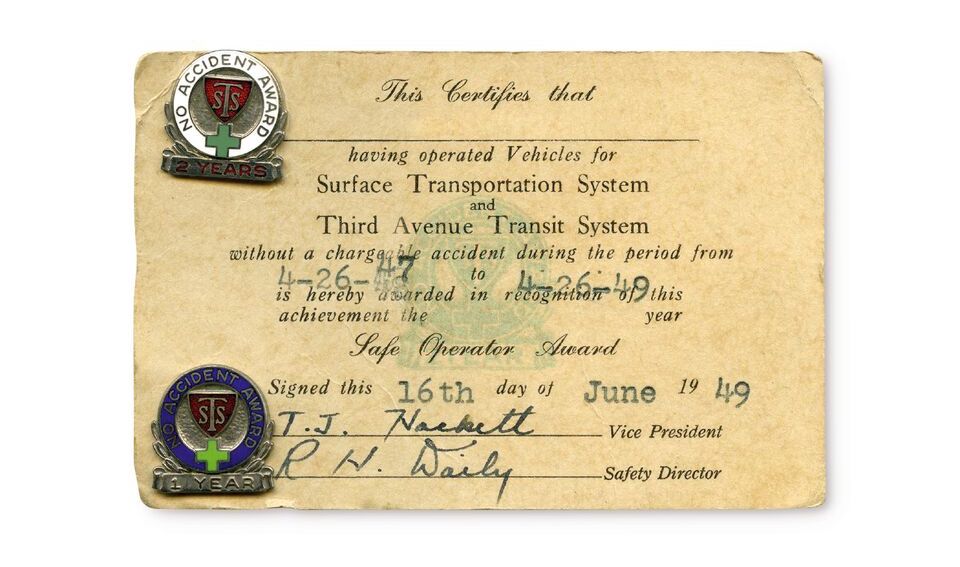 NO ACCIDENT AWARD
STS
2 YEARS
This Certifies that
having operated Vehicles for
Surface Transportation System
and
Third Avenue Transit System
without a chargeable accident during the period from
4-26-47 to 4-26-49
is hereby awarded in recognition of this
achievement the year
Safe Operator Award
Signed this 16th day of June 19 49
T.J. Hackett Vice President
R H. Daily Safety Director
NO ACCIDENT AWARD
STS
1 YEAR